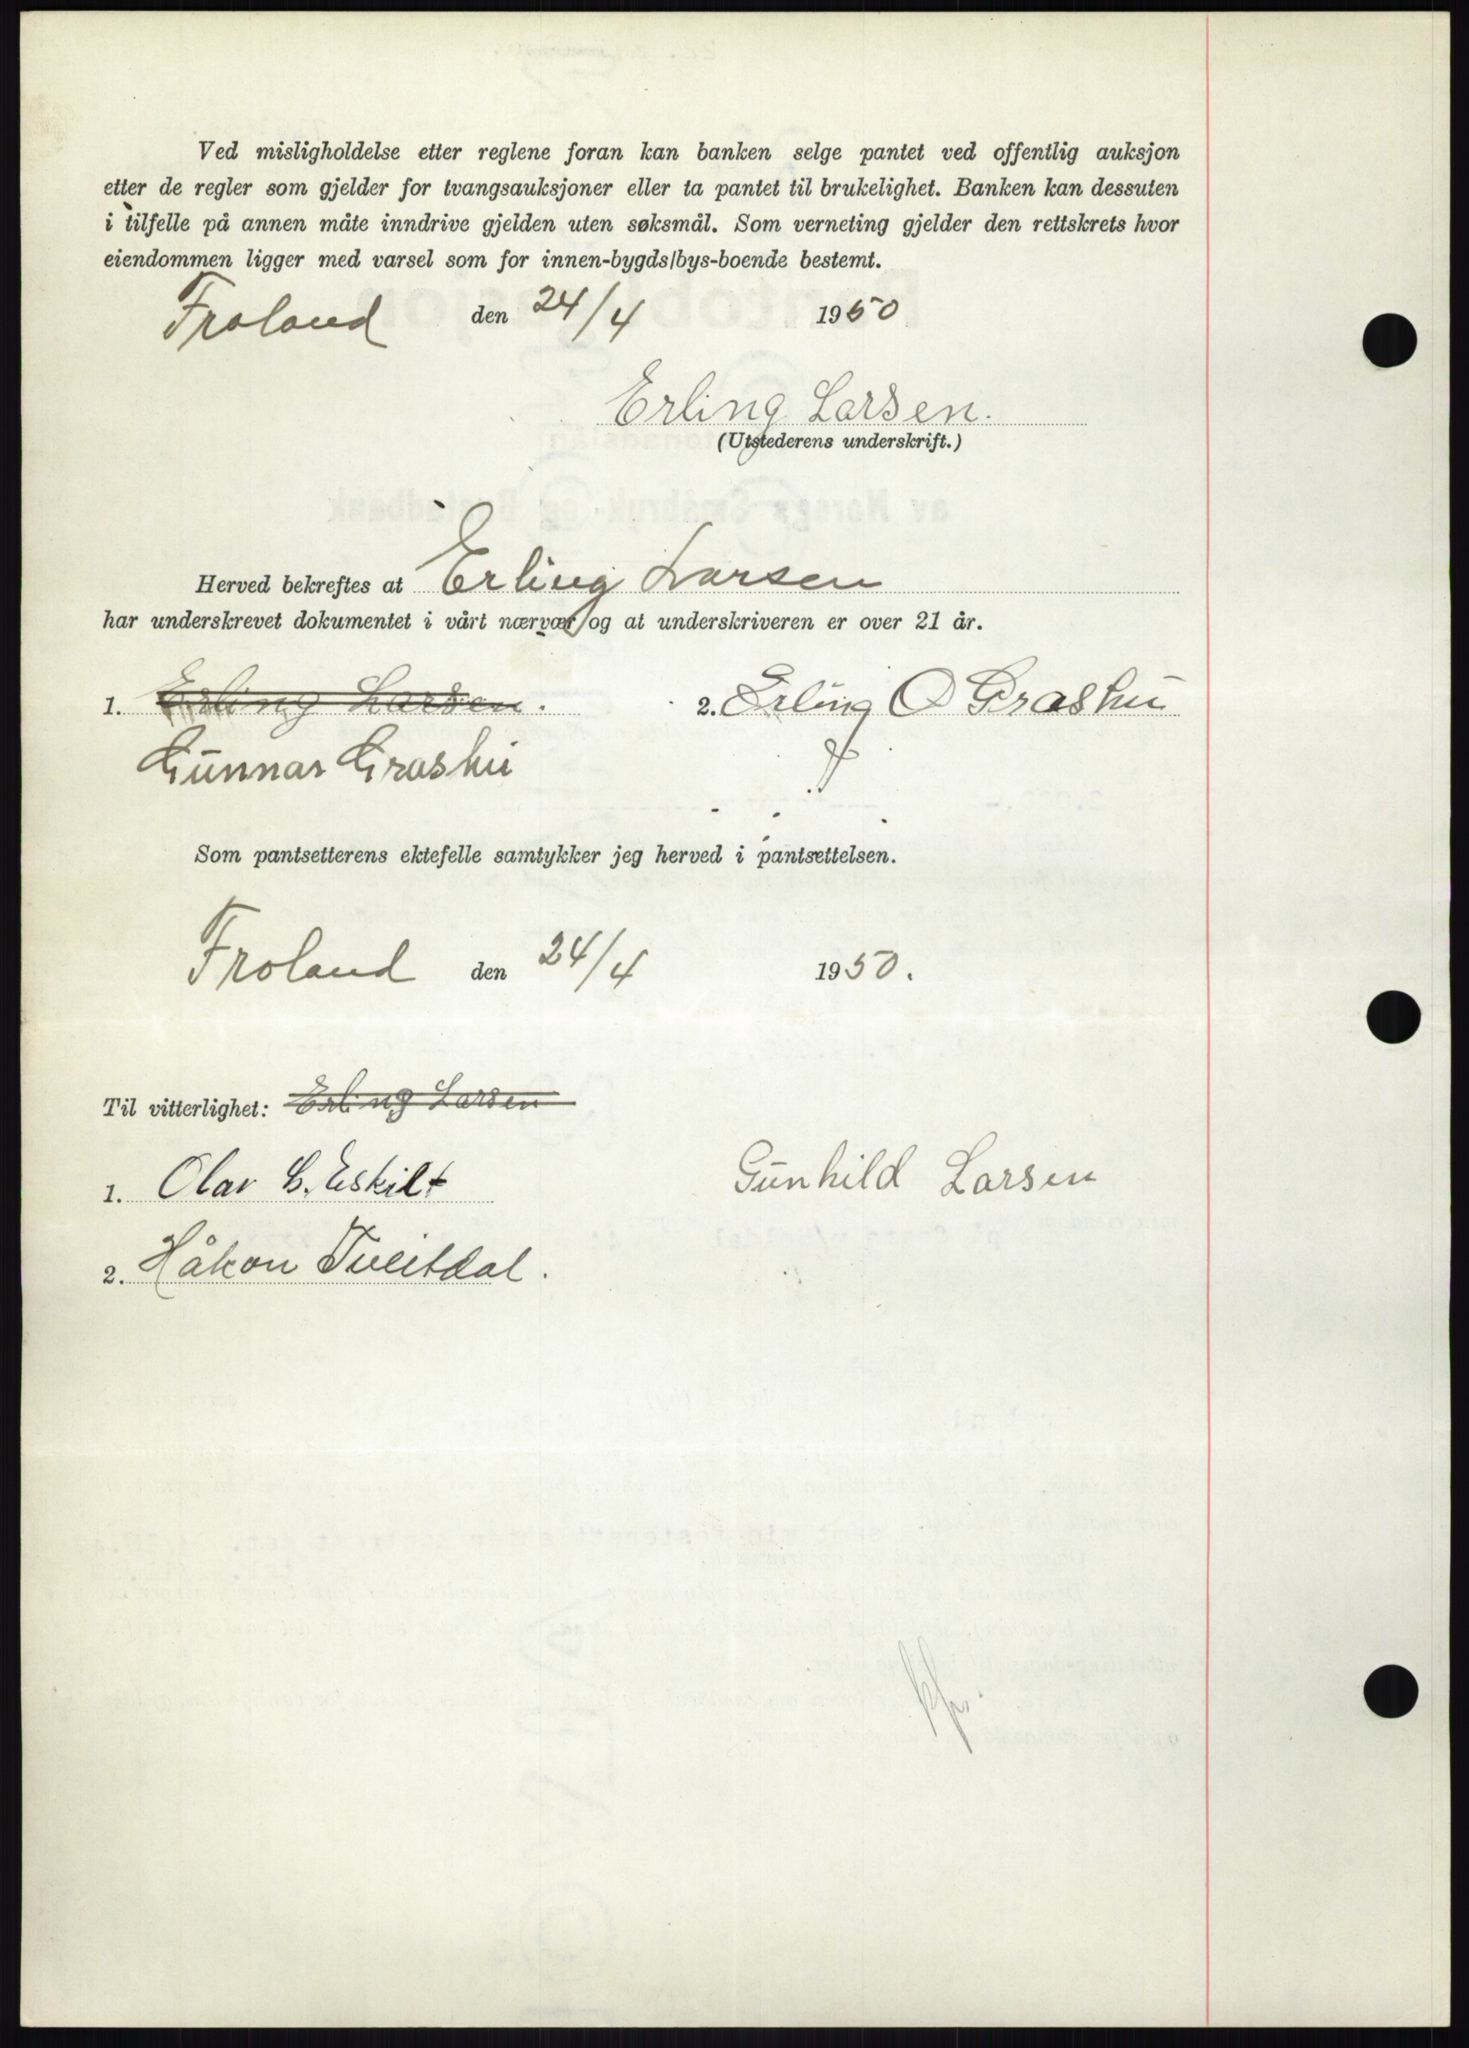 Ved misligholdelse etter reglene foran kan banken selge pantet ved offentlig auksjon
etter de regler som gjelder for tvangsauksjoner eller ta pantet til brukelighet. Banken kan dessuten
i tilfelle på annen måte inndrive gjelden uten søksmål. Som verneting gjelder den rettskrets hvor
eiendommen ligger med varsel som for innen-bygds/bys-boende bestemt.
Froland den 24/4 1950
Erling Larsen.
(Utstederens underskrift.)
Herved bekreftes at Erling Larsen
har underskrevet dokumentet i vårt nærvær og at underskriveren er over 21 år.
1. Erling Larsen. 2. Erling O Grashei
Gunnar Grashei
Som pantsetterens ektefelle samtykker jeg herved i pantsettelsen.
Froland den 24/4 1950.
Til vitterlighet: Erling Larsen
1. Olav Eskilt Gunhild Larsen
2. Håkon Tveitdal.